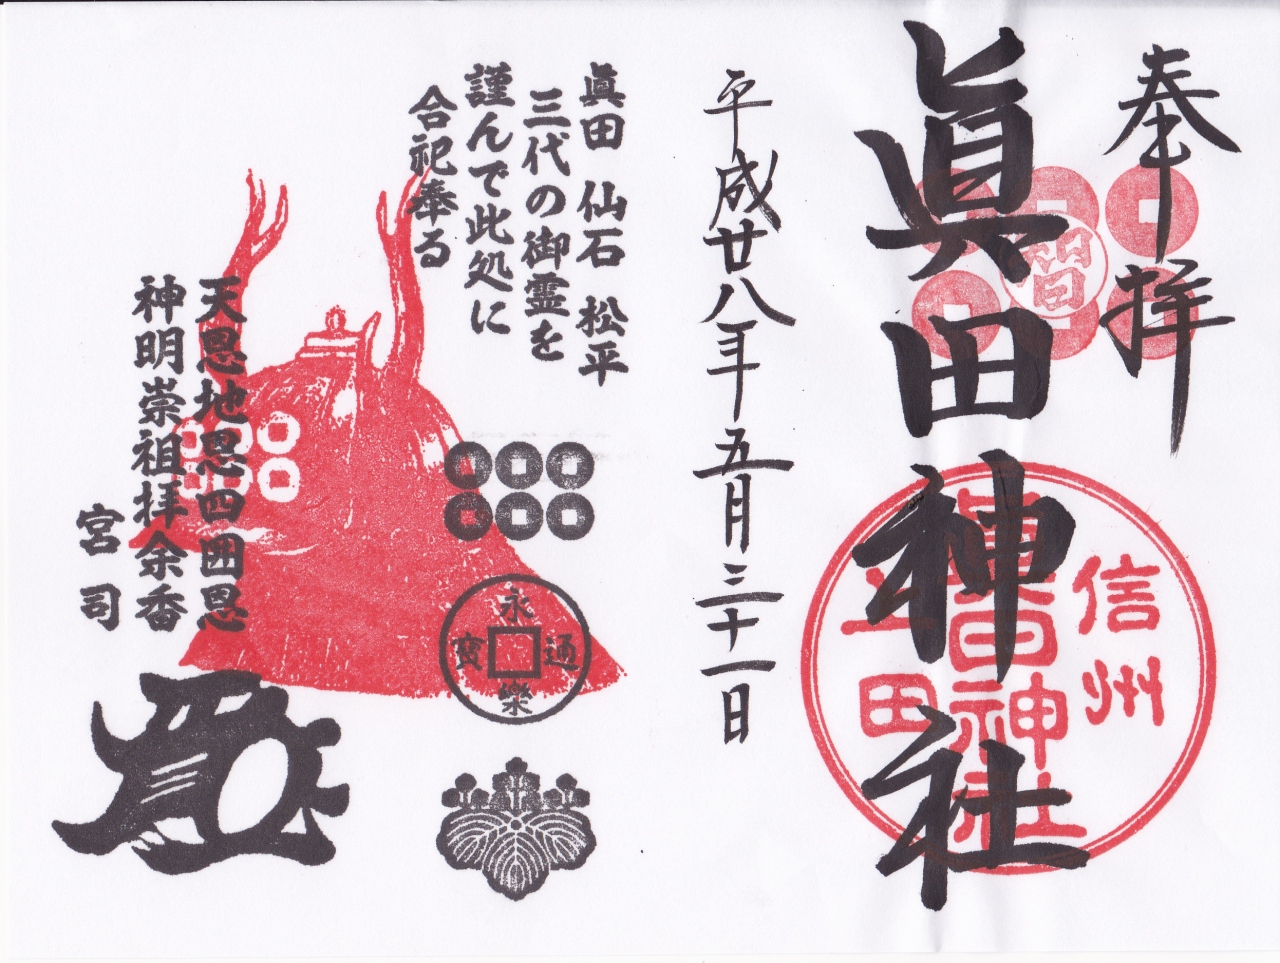 奉拝
智
眞田神社
信州
眞田神社
上田
平成廿八年五月三十一日
眞田 仙石 松平
三代の御霊を
謹んで此処に
合祀奉る
永樂通寳
天恩地恩四囲恩
神明崇祖拝余香
宮司